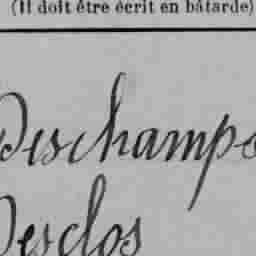 (Il doit être écrit en bâtarde)
Deschamps
Desclos